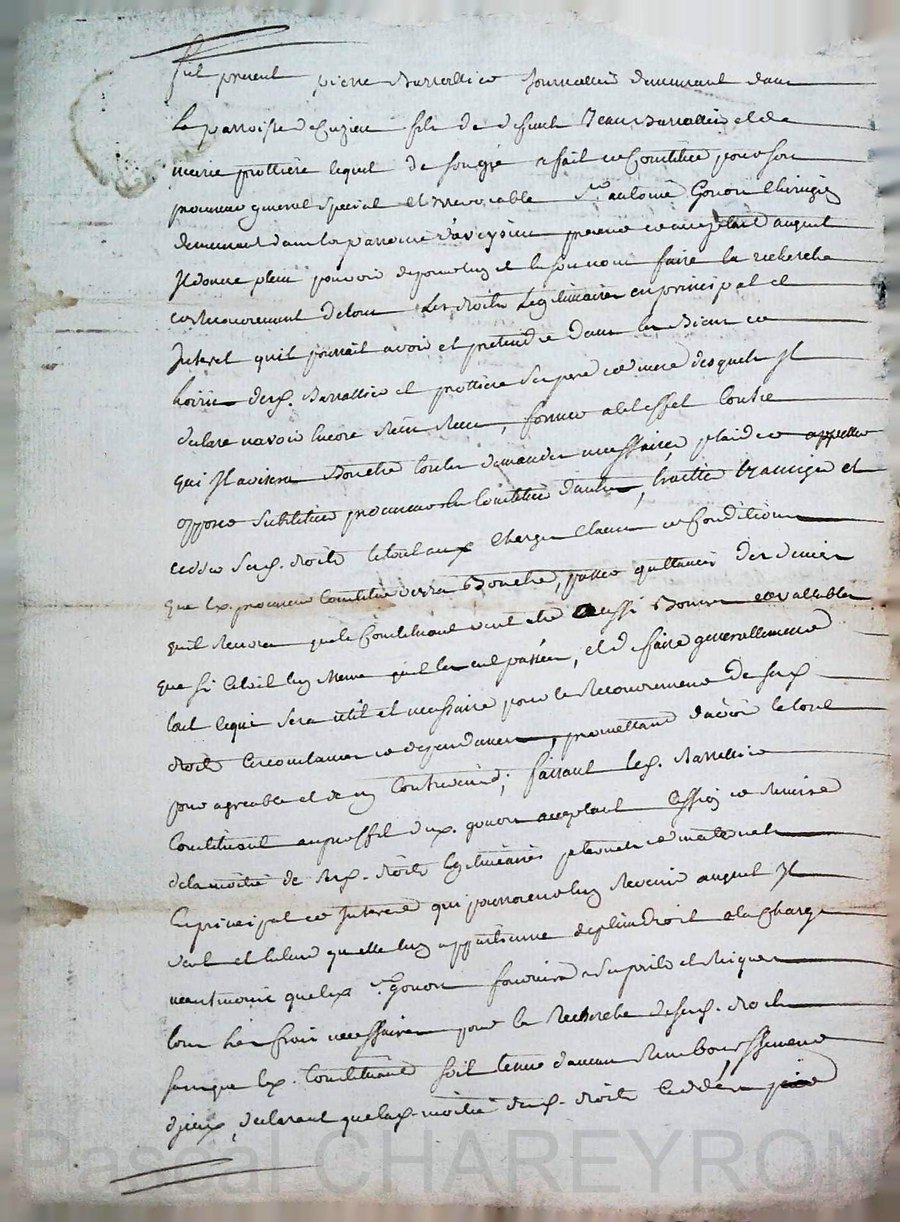 fut present pierre Barrallier Journallier demeurant dans
la parroisse d'Eyzieu fils de deffunt Jean Barrallier et de
marie prottiere lequel de son gré a fait et Constitué pour son
procureur general special et irrevocable Sr. antoine Gonon Chirugien
demeurant dans la parroisse d'aveyzieu present et acceptant auquel
Il donne plein pouvoir de pour luy et en son nom faire la recherche
et recouvrement de tous les droits Legitimaires en principal et
Interet qu'il pourrait avoir et pretendre dans les Biens et
hoirie desd. Barrallier et prottiere ses pere et mere desquels Il
declare n'avoir Encore rien Receu, former a cet effet Contre
qui Il avisera Bon etre toutes demandes necessaires, plaider appeller
opposer Substituer procureur En Constituer d'autres, traitter transiger et
ceder sesd. droits le tout aux Charges Clauses et Conditions
que led. procureur Constitué verra Bon etre, passer quittances des deniers
qu'il Recevra que le Constituant veut etre aussi Bonnes et vallables
que si C'etoit luy Meme qui les eut passées, et de faire generallement
tout ce qui sera utile et necessaire pour le Recouvrement de sesd.
droits Circonstances et dependances, promettant d'avoir le tout
pour agreable et de n'y Contrevenir; faisant led. Barrallier
Constituant au proffit dud. gonon acceptant Cession et Remise
de la moitié de sesd. droits legitimaires paternels et maternels
En principal et Interets qui pourroient luy Revenir auquel Il
veut et Entend qu'elle luy appartienne de plein droit a la Charge
neantmoins que led. Sr. Gonon fournira a ses perils et Risques
tous les frais necessaires pour la Recherche de sesd. droits
sans que led. Constituant soit tenu d'aucun Remboursement
d'iceux, declarant que lad. moitié desd. droits Cedder
Pascal CHAREYRON